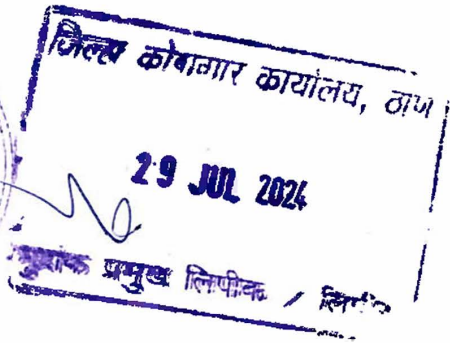 जिल्हा कोषागार कार्यालय, ठाणे
29 JUL 2024
मुद्रांक प्रमुख लिपीक / लिपीक